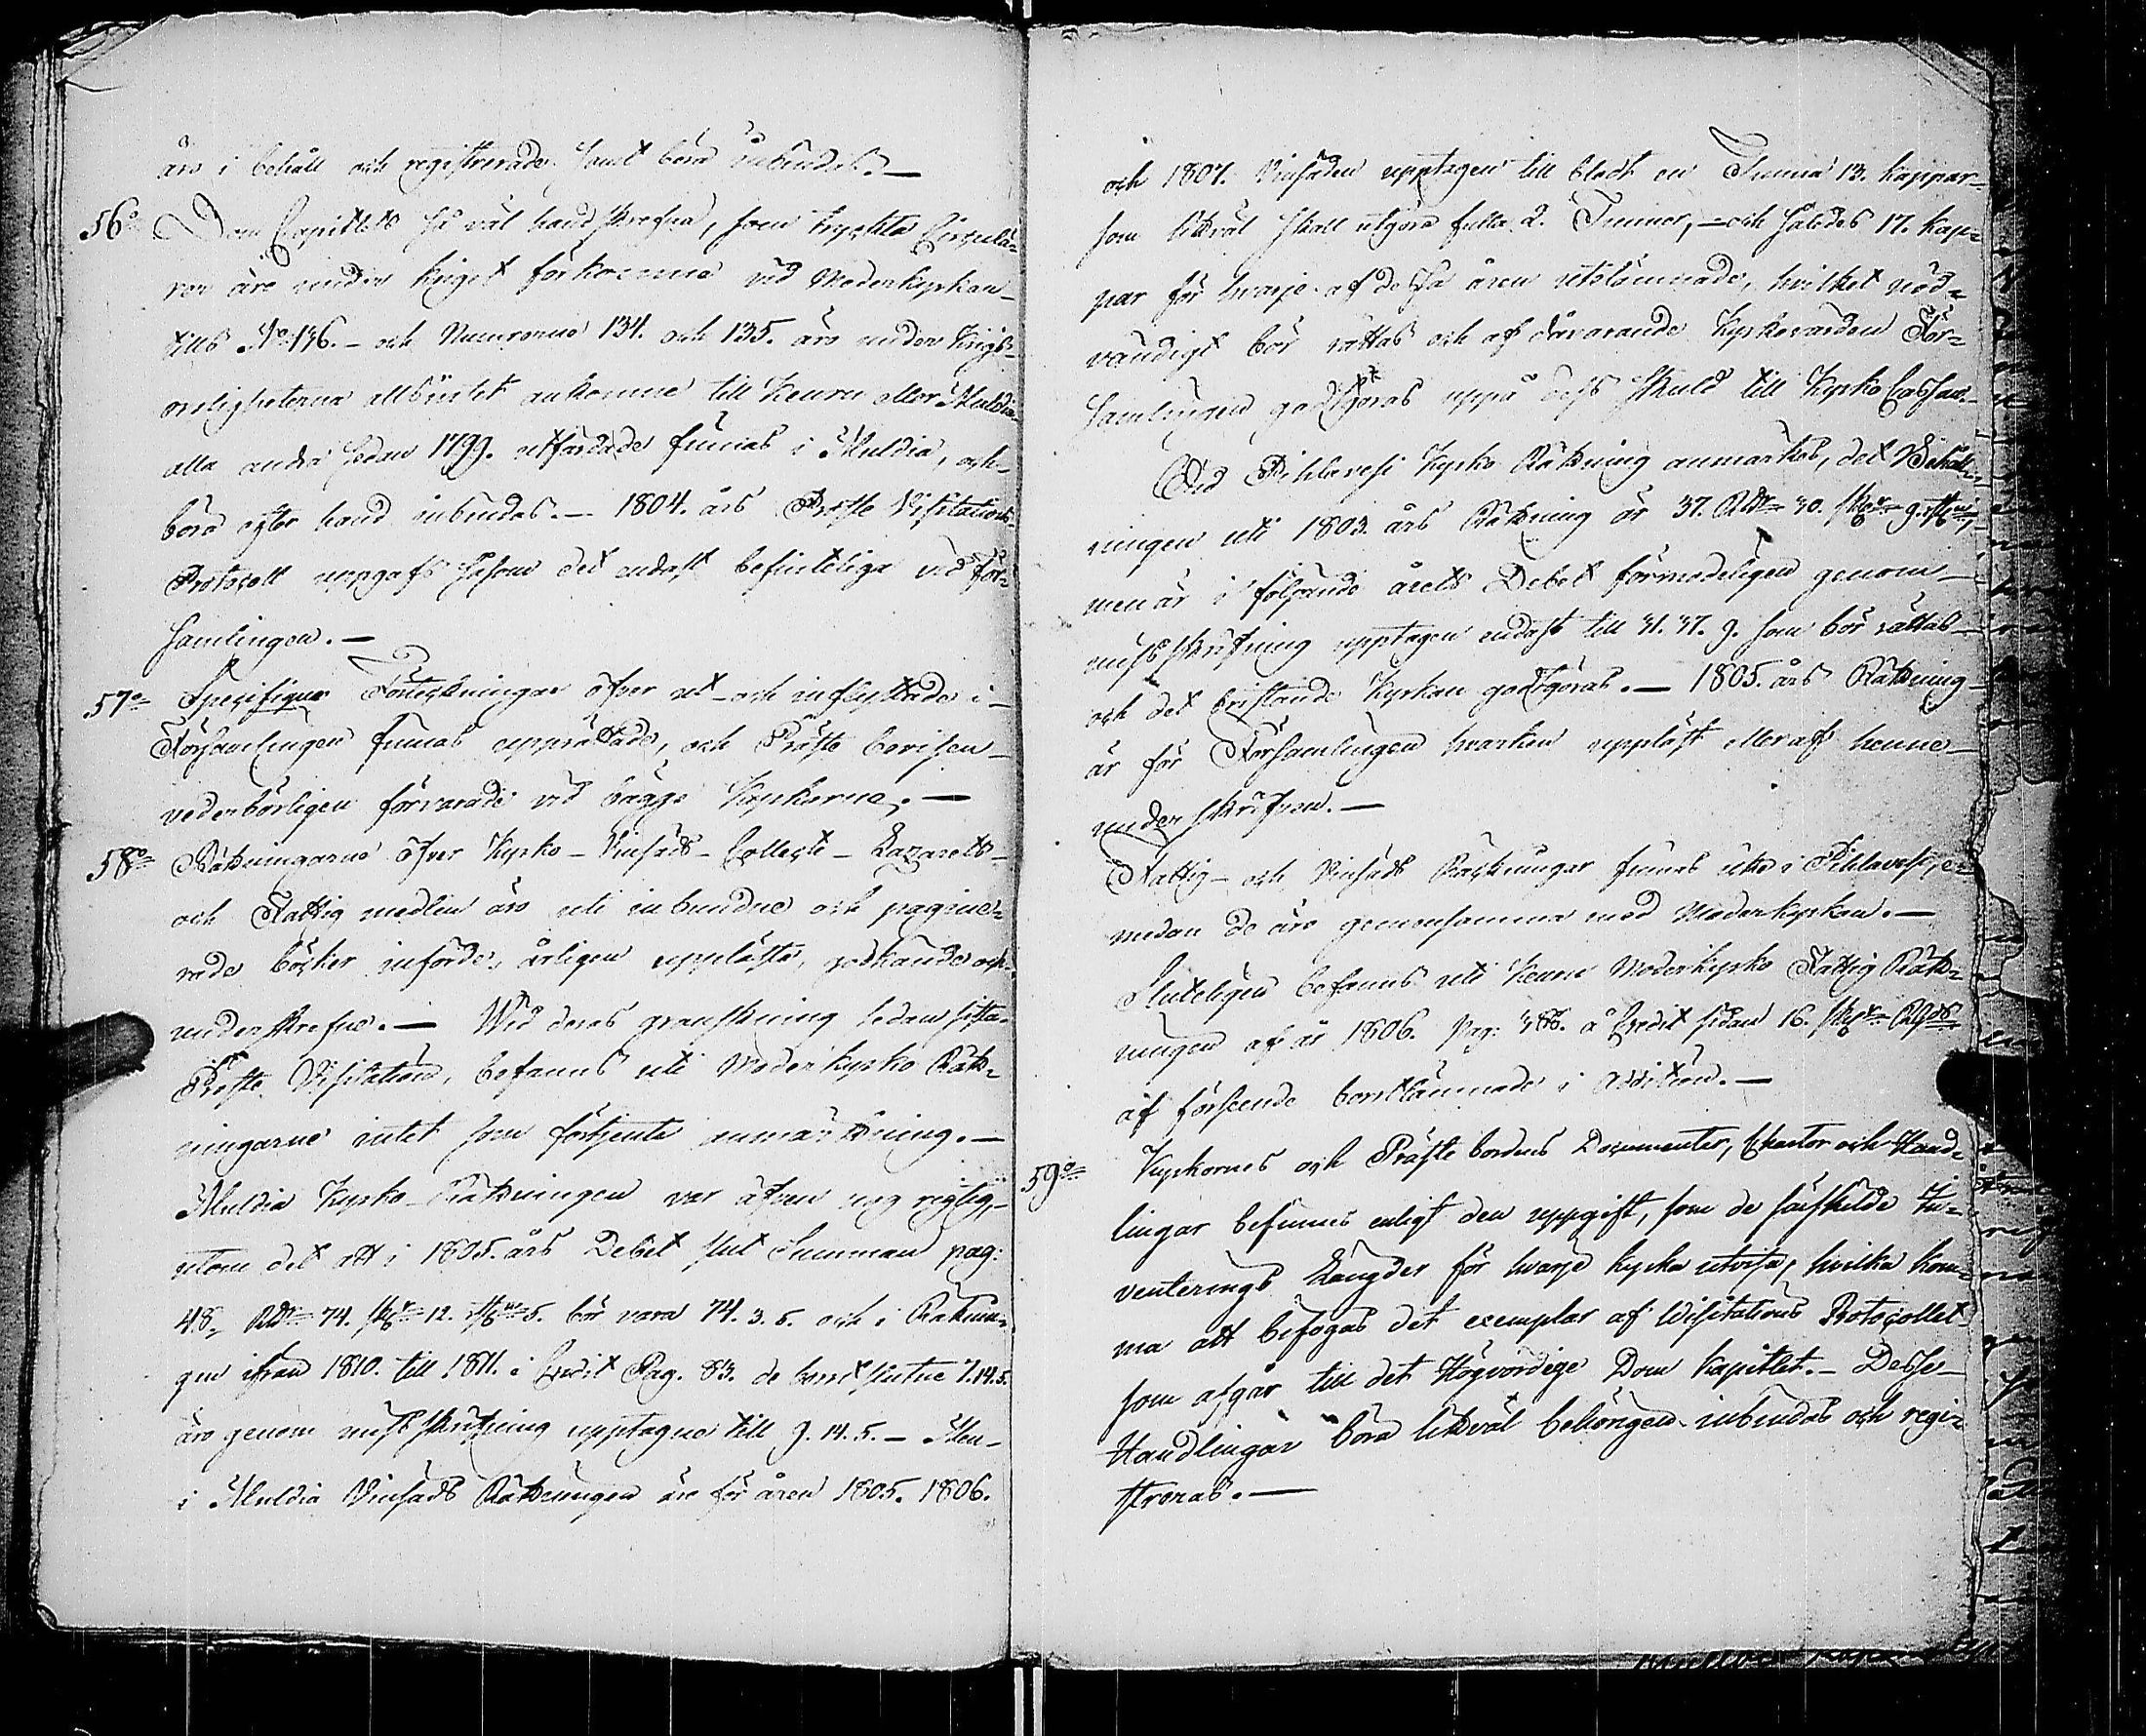 äro i behåll och registrerade samt böra inbindas. —
56:o Dom Capitlets så väl handskrefna, som tryckta Circulä-
rer äro under kriget förkomne vid Moderkyrkan
tills N:o 136. – och Numrorne 134. och 135. äro under krigs-
oroligheterne alldsintet ankomne till Keuru eller Multia
alla andra sedan 1799. utfärdade finnas i Multia, och
böra efter hand inbindas. — 1804. års Proste Visitations
Protocoll uppgafs såsom det endast befinteliga vid För-
samlingen. —
57:o Specifique Förteckningar öfver ut- och inflyttade i
Församlingen finnas upprättade, och Präste bevisen
vederbörligen förvarade vid bägge Kyrkorne. —
58:o Räkningarne öfver Kyrko – Vinsäds – Collecte – Lazaretts –
och Fattig medlen äro uti inbundne och pagine-
rade böcker införde, årligen uppläste, godkände och
underskrefne. — Wid deras granskning sedan sista
Proste Visitation, befanns uti Moderkyrko Räk-
ningarne intet som förtjente anmärkning. —
Multia Kyrko-Räkningen var äfven nog rigtig,
utom det att i 1805. års Debet slut Summan pag:
48, Rdr 74. sk 12. r 5. bör vara 74. 3. 5. och i Räknin-
gen ifrån 1810. till 1811. i Credit Pag. 83. de 7.14.5.
äro genom misskrifning upptagne till 9. 14. 5. – Men
i Multia Vinsäds Räkningen äro för åren 1805. 1806.
och 1807. Vinsäden upptagen till blott en Tunna 13. kappar
som likväl skall utgöra fulla 2. Tunnor, – och således 17. kap-
par för hvarje af dessa åren utelämnade, hvilket nöd-
vändigt bör rättas och af dåvarande Kyrkovärden För-
samlingen godtgöras uppå dess skuld till Kyrko Cassan.
Vid Pihlavesi Kyrko Räkning anmärkes, det Behåll-
ningen uti 1803. års Räkning är 37. Rdr 30. sk 9.
men är i följande årets Debet förmodeligen genom
misskrifning upptagen endast till 31. 37. 9. som bör rättas
och det bristande Kyrkan godtgöras. — 1805. års Räkning
är för Församlingen hvarken uppläst eller af henne
underskrifven. —
Fattig- och Vinsäds Räkningar finnas icke i Pihlavesi, e-
medan de äro gemensamma med Moderkyrkan. —
Sluteligen befanns uti Keuru Moderkyrko Fattig Räk-
ningen af år 1806. pag: 386. å Credit sidan 16. sk
af förseende bortlämnade i Addition. —
59:o Kyrkornes och Präste bordens Documenter, Chartor och Hand-
lingar befinnes enligt den uppgift, som de särskilde In-
venterings Längder för hvarje kyrka utvisa, hvilka kom-
ma att bifogas det exemplar af Visitations Protocollet
som afgår till det Högvördige Dom Kapitlet. – Desse
Handlingar böra likväl behörigen inbindas och regi-
streras. —